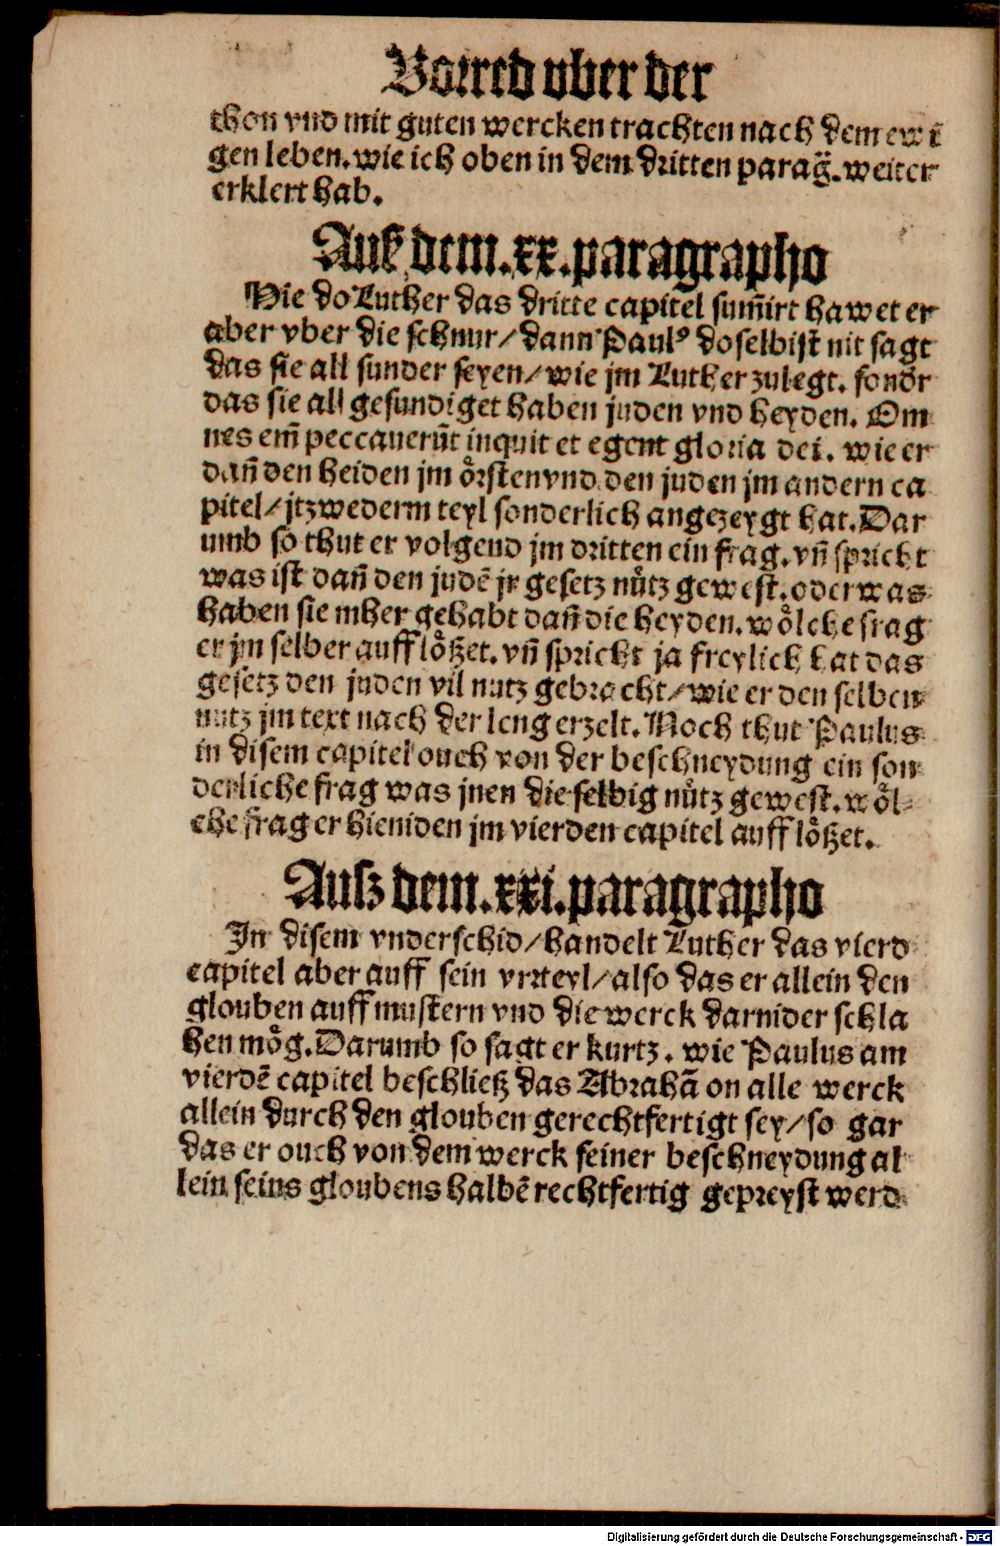 Vorred vber der
thon vnd mit guten wercken trachten nach dem ewi̅
gen leben. wie ich oben in dem dritten parag̈. weiter
erklert hab.
Auß dem. xx. paragrapho
Hie do Luther das dritte capitel sum̅irt hawet er
aber vber die schnur/ dann Paulꝰ doselbist nit sagt
das sie all sunder seyen/ wie jm Luther zulegt. sondr̅
das sie all gesundiget haben juden vnd heyden. Om
nes em̅ peccaueru̅t inquit et egent gloria dei. wie er
dan̅ den heiden jm oͤrsten vnd den juden jm andern ca
pitel/ jtzwederm teyl sonderlich angezeygt hat. Dar
umb so thut er volgend jm dritten ein frag. vn̅ spricht
was ist dan̅ den jude̅ jr gesetz nuͤtz gewest. oder was
haben sie mher gehabt dan̅ die heyden. woͤlche frag
er jm selber auffloͤßet. vn̅ spricht ja freylich hat das
gesetz den juden vil nutz gebracht/ wie er den selben
nutz jm text nach der leng erzelt. Noch thut Paulus
in disem capitel ouch von der beschneydung ein son
derliche frag was jnen die selbig nuͤtz gewest. woͤl-
che frag er hieniden jm vierden capitel auffloͤßet.
Ausz dem. xxi. paragrapho
In disem vnderschid/ handelt Luther das vierd
capitel aber auff sein vrteyl/ also das er allein den
glouben auffmustern vnd die werck darnider schla
hen moͤg. Darumb so sagt er kurtz. wie Paulus am
vierde̅ capitel beschließ das Abraha̅ on alle werck
allein durch den glouben gerechtfertigt sey/ so gar
das er ouch von dem werck seiner beschneydung al
lein seins gloubens halbe̅ rechtfertig gepreyst werd
Digitalisierung gefördert durch die Deutsche Forschungsgemeinschaft - DFG